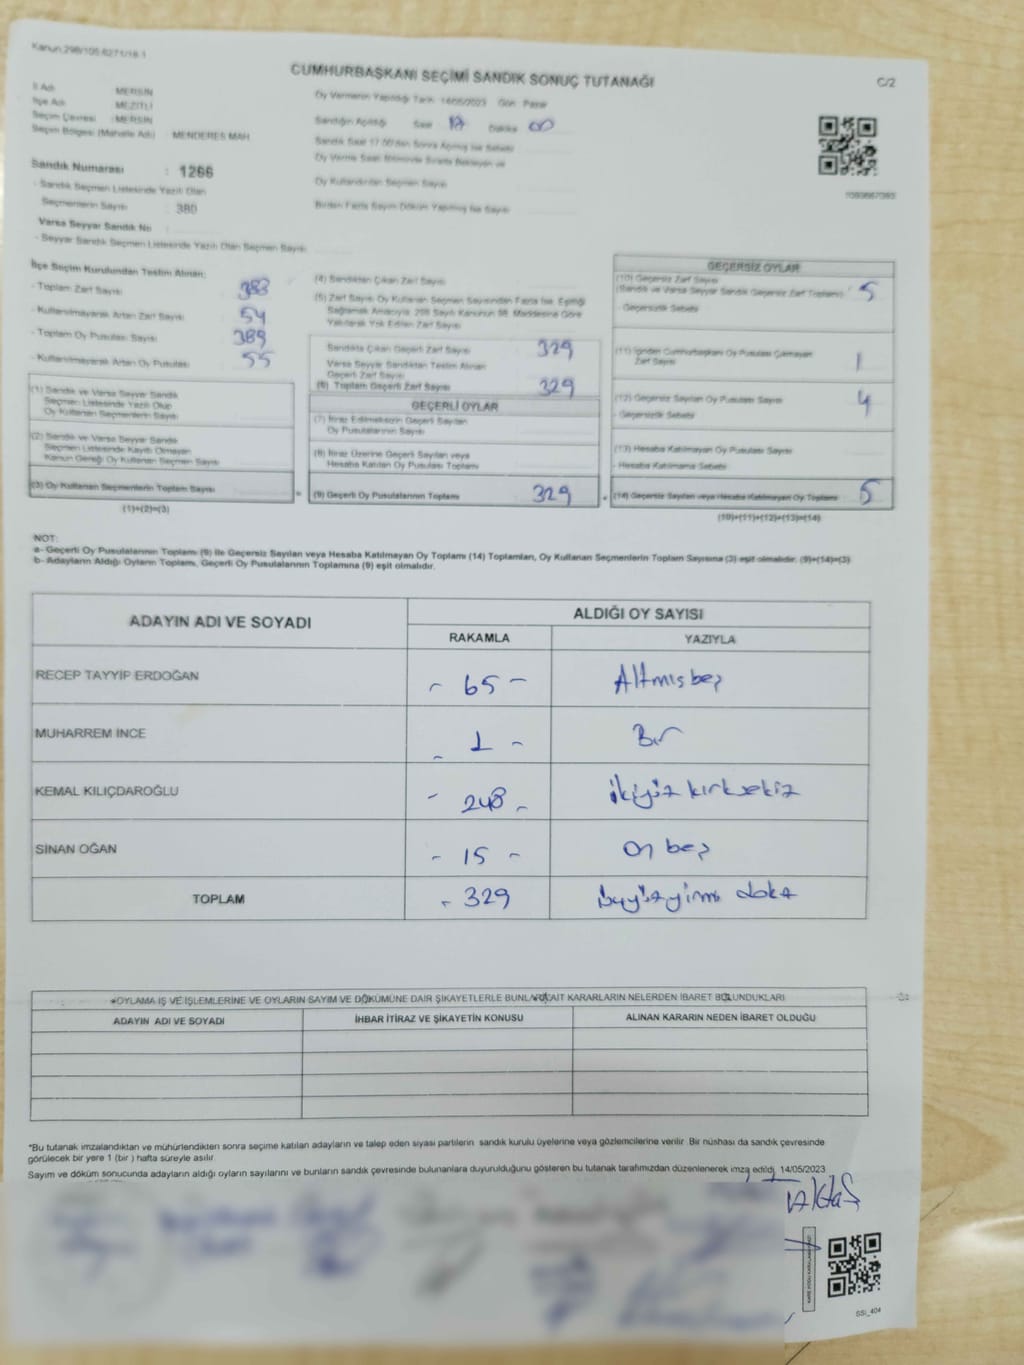 Kanun:298/105 6271/18.1
CUMHURBAŞKANI SEÇİMİ SANDIK SONUÇ TUTANAĞI
C/2
İl Adı : MERSİN
İlçe Adı : MEZİTLİ
Seçim Çevresi : MERSİN
Seçim Bölgesi (Mahalle Adı) : MENDERES MAH.
Oy Vermenin Yapıldığı Tarih: 14/05/2023 Gün: Pazar
Sandığın Açıldığı Saat 17 Dakika 00
Sandık Saat 17.00'den Sonra Açılmış İse Sebebi
Oy Verme Saati Bitiminde Sırada Bekleyen ve
Oy Kullandırılan Seçmen Sayısı
Birden Fazla Sayım Döküm Yapılmış İse Sayısı
Sandık Numarası : 1266
- Sandık Seçmen Listesinde Yazılı Olan
Seçmenlerin Sayısı : 380
Varsa Seyyar Sandık No
- Seyyar Sandık Seçmen Listesinde Yazılı Olan Seçmen Sayısı
İlçe Seçim Kurulundan Teslim Alınan:
- Toplam Zarf Sayısı 383
- Kullanılmayarak Artan Zarf Sayısı 54
- Toplam Oy Pusulası Sayısı 389
- Kullanılmayarak Artan Oy Pusulası 55
(1) Sandık ve Varsa Seyyar Sandık
Seçmen Listesinde Yazılı Olup
Oy Kullanan Seçmenlerin Sayısı
(2) Sandık ve Varsa Seyyar Sandık
Seçmen Listesinde Kayıtlı Olmayan
Kanun Gereği Oy Kullanan Seçmen Sayısı
(3) Oy Kullanan Seçmenlerin Toplam Sayısı
(1)+(2)=(3)
(4) Sandıktan Çıkan Zarf Sayısı
(5) Zarf Sayısı Oy Kullanan Seçmen Sayısından Fazla İse, Eşitliği
Sağlamak Amacıyla, 298 Sayılı Kanunun 98. Maddesine Göre
Yakılarak Yok Edilen Zarf Sayısı
Sandıkta Çıkan Geçerli Zarf Sayısı 329
Varsa Seyyar Sandıktan Teslim Alınan
Geçerli Zarf Sayısı
(6) Toplam Geçerli Zarf Sayısı 329
GEÇERLİ OYLAR
(7) İtiraz Edilmeksizin Geçerli Sayılan
Oy Pusulalarının Sayısı
(8) İtiraz Üzerine Geçerli Sayılan veya
Hesaba Katılan Oy Pusulası Toplamı
(9) Geçerli Oy Pusulalarının Toplamı 329
GEÇERSİZ OYLAR
(10) Geçersiz Zarf Sayısı
(Sandık ve Varsa Seyyar Sandık Geçersiz Zarf Toplamı) 5
- Geçersizlik Sebebi
(11) İçinden Cumhurbaşkanı Oy Pusulası Çıkmayan
Zarf Sayısı 1
(12) Geçersiz Sayılan Oy Pusulası Sayısı 4
- Geçersizlik Sebebi
(13) Hesaba Katılmayan Oy Pusulası Sayısı
- Hesaba Katılmama Sebebi
(14) Geçersiz Sayılan veya Hesaba Katılmayan Oy Toplamı 5
(10)+(11)+(12)+(13)=(14)
NOT:
a- Geçerli Oy Pusulalarının Toplamı (9) ile Geçersiz Sayılan veya Hesaba Katılmayan Oy Toplamı (14) Toplamları, Oy Kullanan Seçmenlerin Toplam Sayısına (3) eşit olmalıdır. (9)+(14)=(3)
b- Adayların Aldığı Oyların Toplamı, Geçerli Oy Pusulalarının Toplamına (9) eşit olmalıdır.
ADAYIN ADI VE SOYADI
ALDIĞI OY SAYISI
RAKAMLA YAZIYLA
RECEP TAYYİP ERDOĞAN - 65 - Altmışbeş
MUHARREM İNCE - 1 - Bir
KEMAL KILIÇDAROĞLU - 248 - İkiyüz kırksekiz
SİNAN OĞAN - 15 - On beş
TOPLAM - 329 üçyüzyirmi dokuz
OYLAMA İŞ VE İŞLEMLERİNE VE OYLARIN SAYIM VE DÖKÜMÜNE DAİR ŞİKAYETLERLE BUNLARA AİT KARARLARIN NELERDEN İBARET BULUNDUKLARI
ADAYIN ADI VE SOYADI İHBAR İTİRAZ VE ŞİKAYETİN KONUSU ALINAN KARARIN NEDEN İBARET OLDUĞU
*Bu tutanak imzalandıktan ve mühürlendikten sonra seçime katılan adayların ve talep eden siyasi partilerin sandık kurulu üyelerine veya gözlemcilerine verilir. Bir nüshası da sandık çevresinde
görülecek bir yere 1 (bir) hafta süreyle asılır.
Sayım ve döküm sonucunda adayların aldığı oyların sayılarını ve bunların sandık çevresinde bulunanlara duyurulduğunu gösteren bu tutanak tarafımızdan düzenlenerek imza edildi. 14/05/2023
SSI_404